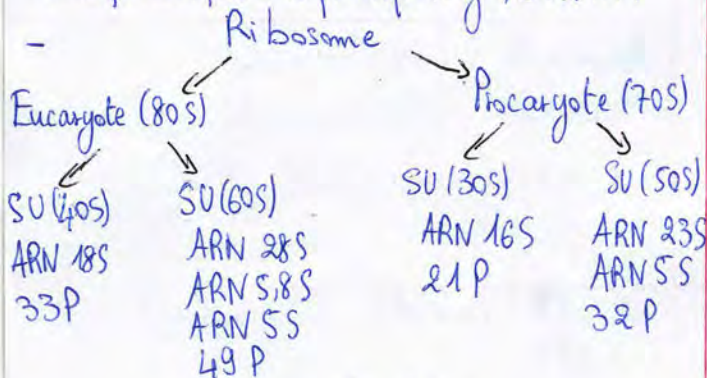 -
Ribosome
Eucaryote (80S)
Procaryote (70S)
SU (40S)
ARN 18S
33P
SU (60S)
ARN 28S
ARN 5,8S
ARN 5S
49 P
SU (30S)
ARN 16S
21P
SU (50S)
ARN 23S
ARN 5S
32 P